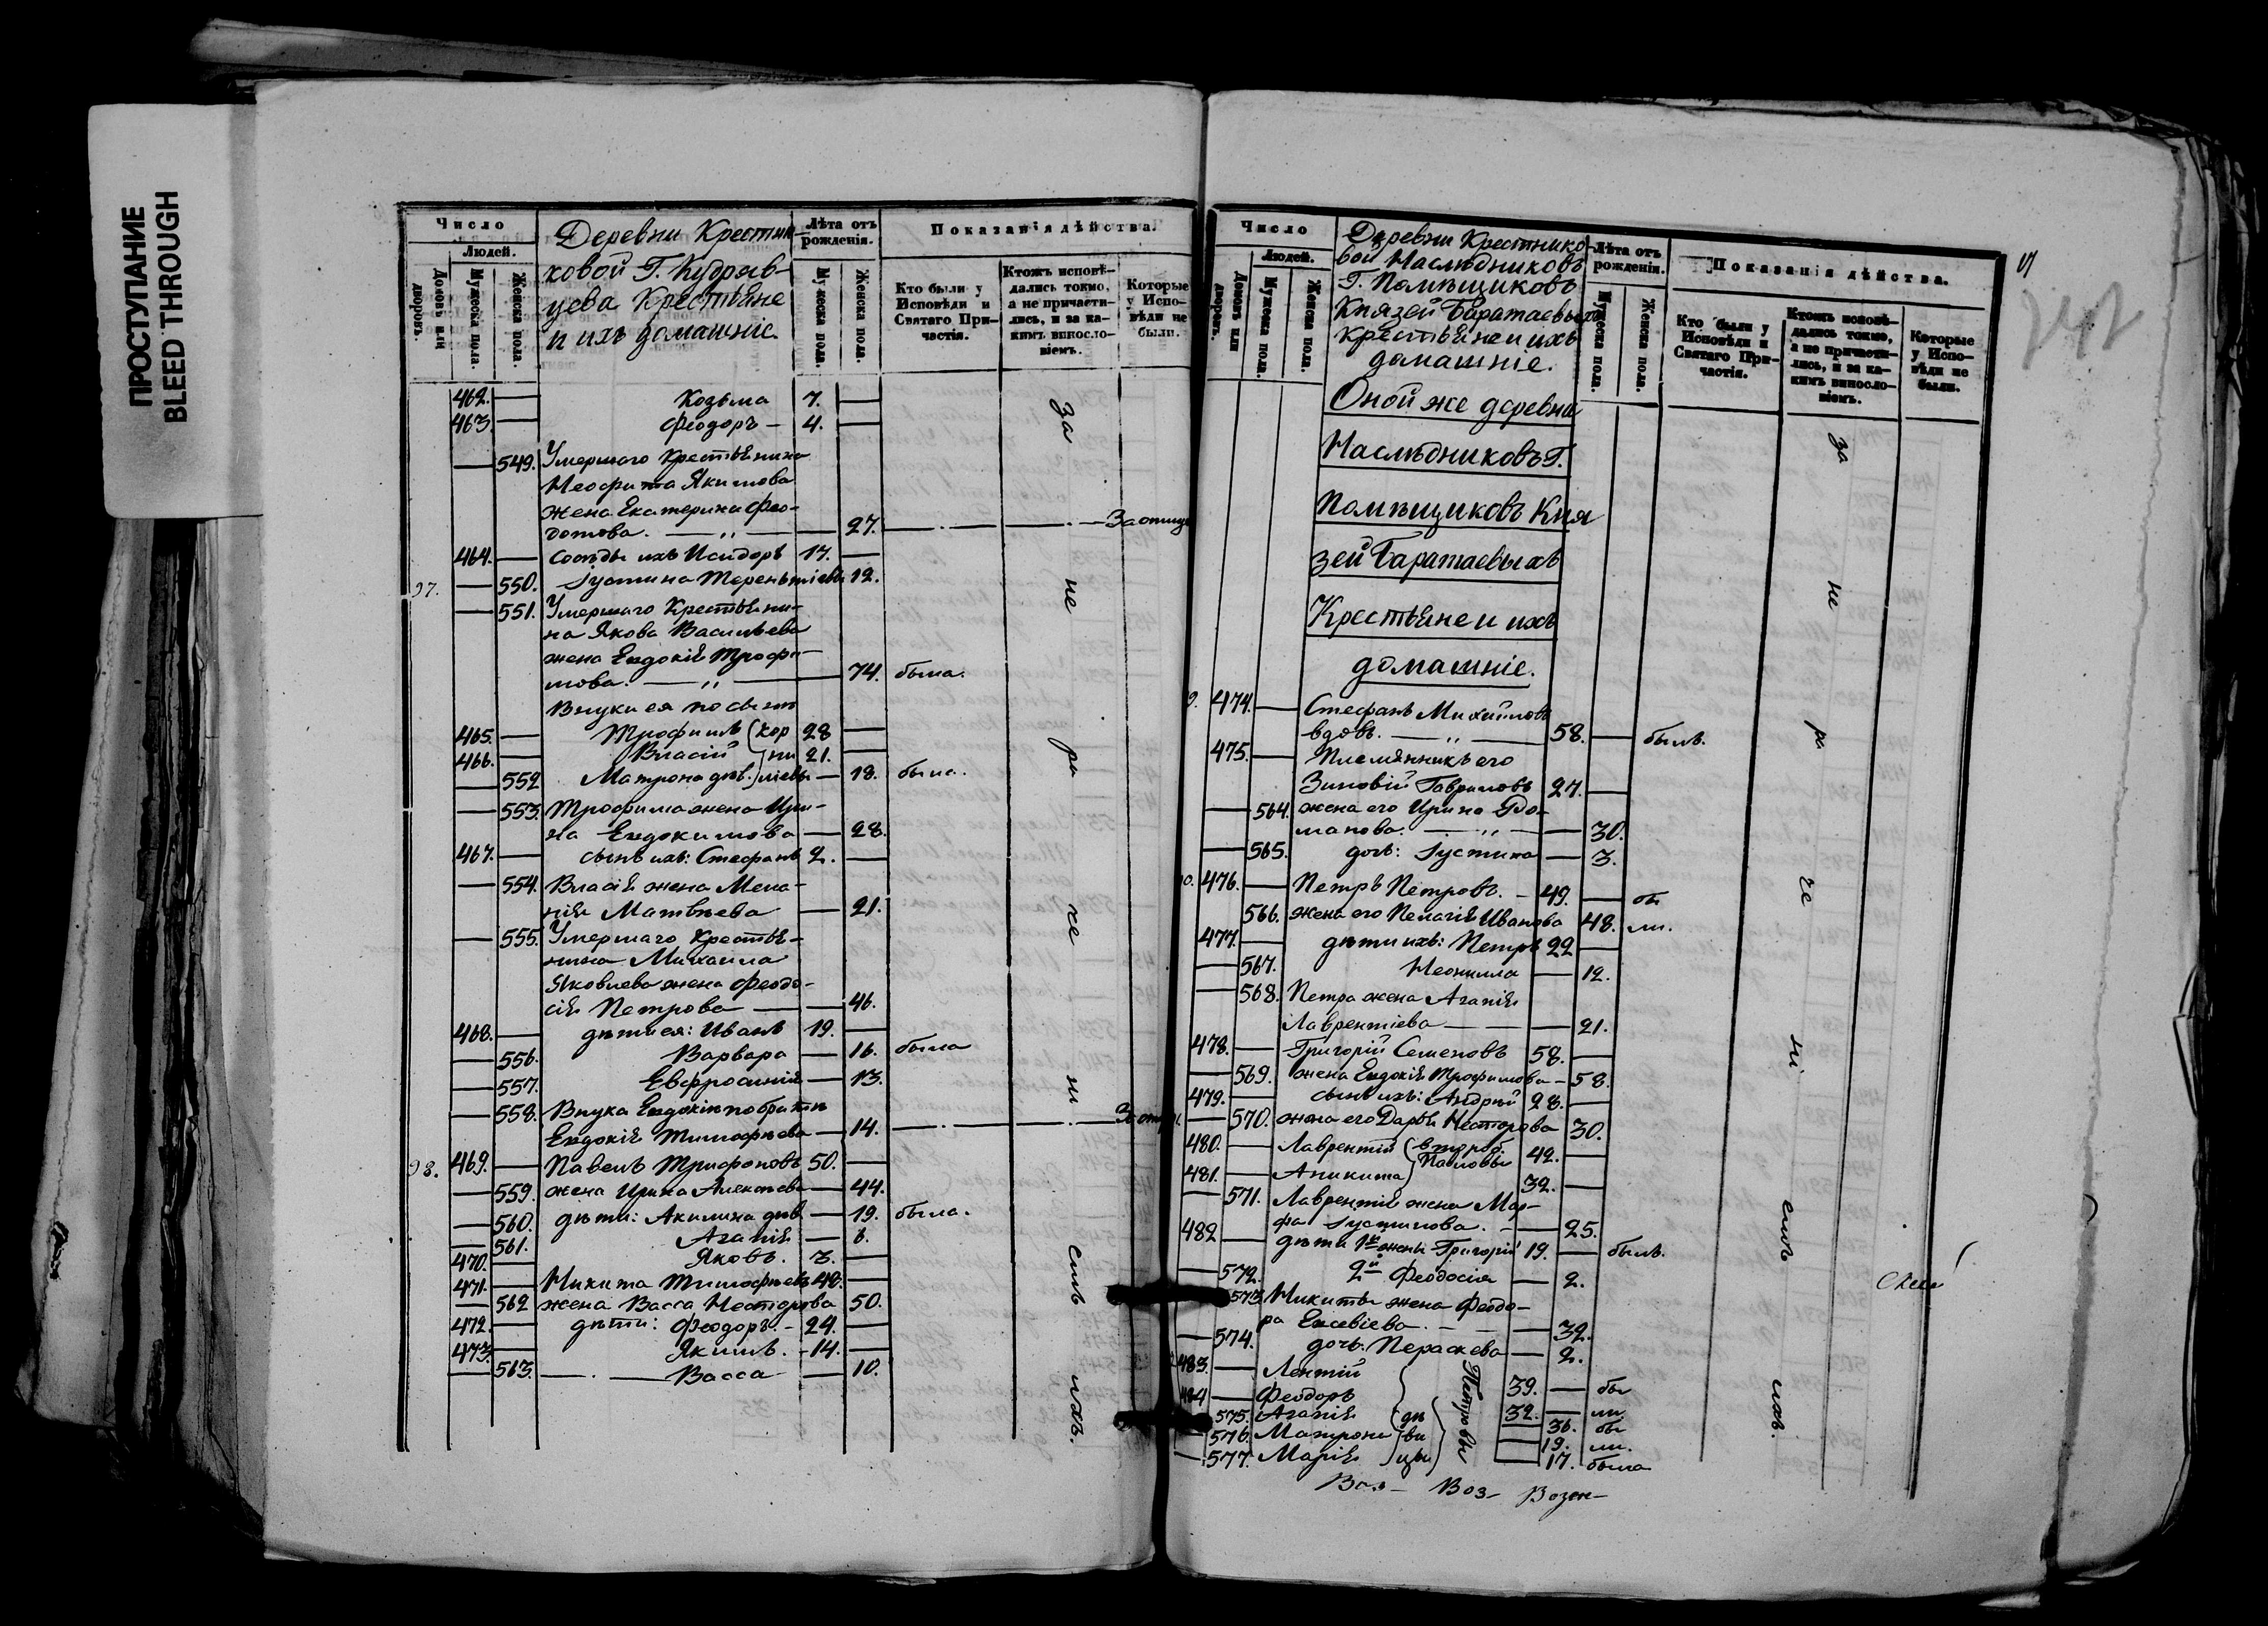 ПРОСТУПАНИЕ
BLEED THROUGH
Число
Людей.
Домовъ или дворовъ.
Мужеска пола.
Женска пола.
Деревни Крестни-
ковой Г. Кудряв-
цева Крестьяне
и ихъ домашніе.
Лѣта отъ рожденія.
Мужеска пола.
Женска пола.
Показанія дѣйства.
Кто были у Исповѣди и Святаго При-частія.
Ктожъ исповѣ-дались токмо, а не причасти-лись, и за ка-кимъ винословіемъ.
Которые у Испо-вѣди не были.
462. — Козьма 7. —
463. — Феодоръ — 4. —
— 549. Умершаго Крестьянина
Неофита Якимова
жена Екатерина Фео-
дотова. — „ — — 27. —
464. — Сосѣды ихъ Исидоръ 17. —
97. — 550. Іустина Терентіевы 12.
— 551. Умершаго Крестьяни-
на Якова Васильева
жена Евдокія Трофи-
мова. — „ — 74. была.
Внуки ея по сынѣ
465. — Трофимъ 28 —
466. — Власій 21. —
— 552 Матрона дѣв. — 18. была.
— 553. Трофима жена Ири-
на Евдокимова — 28.
467. — сынъ ихъ: Стефанъ 2. —
— 554. Власія жена Мела-
нія Матвѣева — 21.
— 555. Умершаго Крестья-
нина Михаила
Яковлева жена Феодо-
сія Петрова — 46.
468. — дѣти ея: Иванъ 19. —
— 556. Варвара — 16. была
— 557. Евфросинія — 13.
— 558. Внука Евдокіи по братѣ
Евдокія Тимофѣева — 14. —
98. 469. — Павелъ Трифоновъ 50. —
— 559. жена Ирина Алексѣева — 44.
— 560. дѣти: Акилина дѣв. — 19. была.
— 561. Агапія — 6.
470. — Яковъ. 3. —
471. — Никита Тимофѣевъ 48. —
— 562 жена Васса Несторова 50.
472. — дѣти: Феодоръ. — 24. —
473. — Якимъ. — 14. —
— 563. — Васса — 10.
за
не
ра
че
ні
емъ
ихъ.
Число
Людей.
Домовъ или дворовъ.
Мужеска пола.
Женска пола.
Деревни Крестнико
вой Наслѣдниковъ
Г. Помѣщиковъ
Князей Баратаевыхъ
крестьяне и ихъ
домашніе.
Лѣта отъ рожденія.
Мужеска пола.
Женска пола.
Показанія дѣйства.
Кто были у Исповѣди и Святаго При-частія.
Ктожъ исповѣ-дались токмо, а не причасти-лись, и за ка-кимъ винословіемъ.
Которые у Испо-вѣди не были.
Оной же деревни
Наслѣдниковъ Г.
Помѣщиковъ Кня
зей Баратаевыхъ
Крестьяне и ихъ
домашніе.
474. — Стефанъ Михайловъ
вдовъ. — „ — 58. — былъ.
475. — Племянникъ его
Зиновій Гавриловъ 27. —
— 564. жена его Ирина Ро-
манова. — „ — — 30.
— 565. дочь: Іустина — 3.
476. — Петръ Петровъ. — 49. — бы
566. жена его Пелагія Иванова 48. ли.
477. — дѣти ихъ: Петръ 22 —
— 567. Неонила — 12.
— 568. Петра жена Агапія
Лаврентіева — — 21.
478. — Григорій Семеновъ 58. —
— 569. жена Евдокія Трофимова — 58.
479. — сынъ ихъ: Андрей 28. —
— 570. жена его Дарья Несторова 30.
480. — Лаврентій 42. —
481. — Аникита Павловы 32. —
— 571. Лаврентія жена Мар-
фа Іустинова. — — 25.
482 — дѣти 1й жены Григорій 19. — былъ.
— 572. 2й Феодосія — 2.
573. Никиты жена Феодо-
ра Евсевіева. — — 32.
— 574. дочь. Параскева — 2.
483. — Леонтій 39. — бы
484 — Феодоръ 32. — ли
575. Агапія 36. бы
— 576. Матрона 19. ли.
— 577. Марія 17. была
дѣ
ви
цы
Петровы
за
не
ра
че
ні
емъ
ихъ.
Воз- Воз-